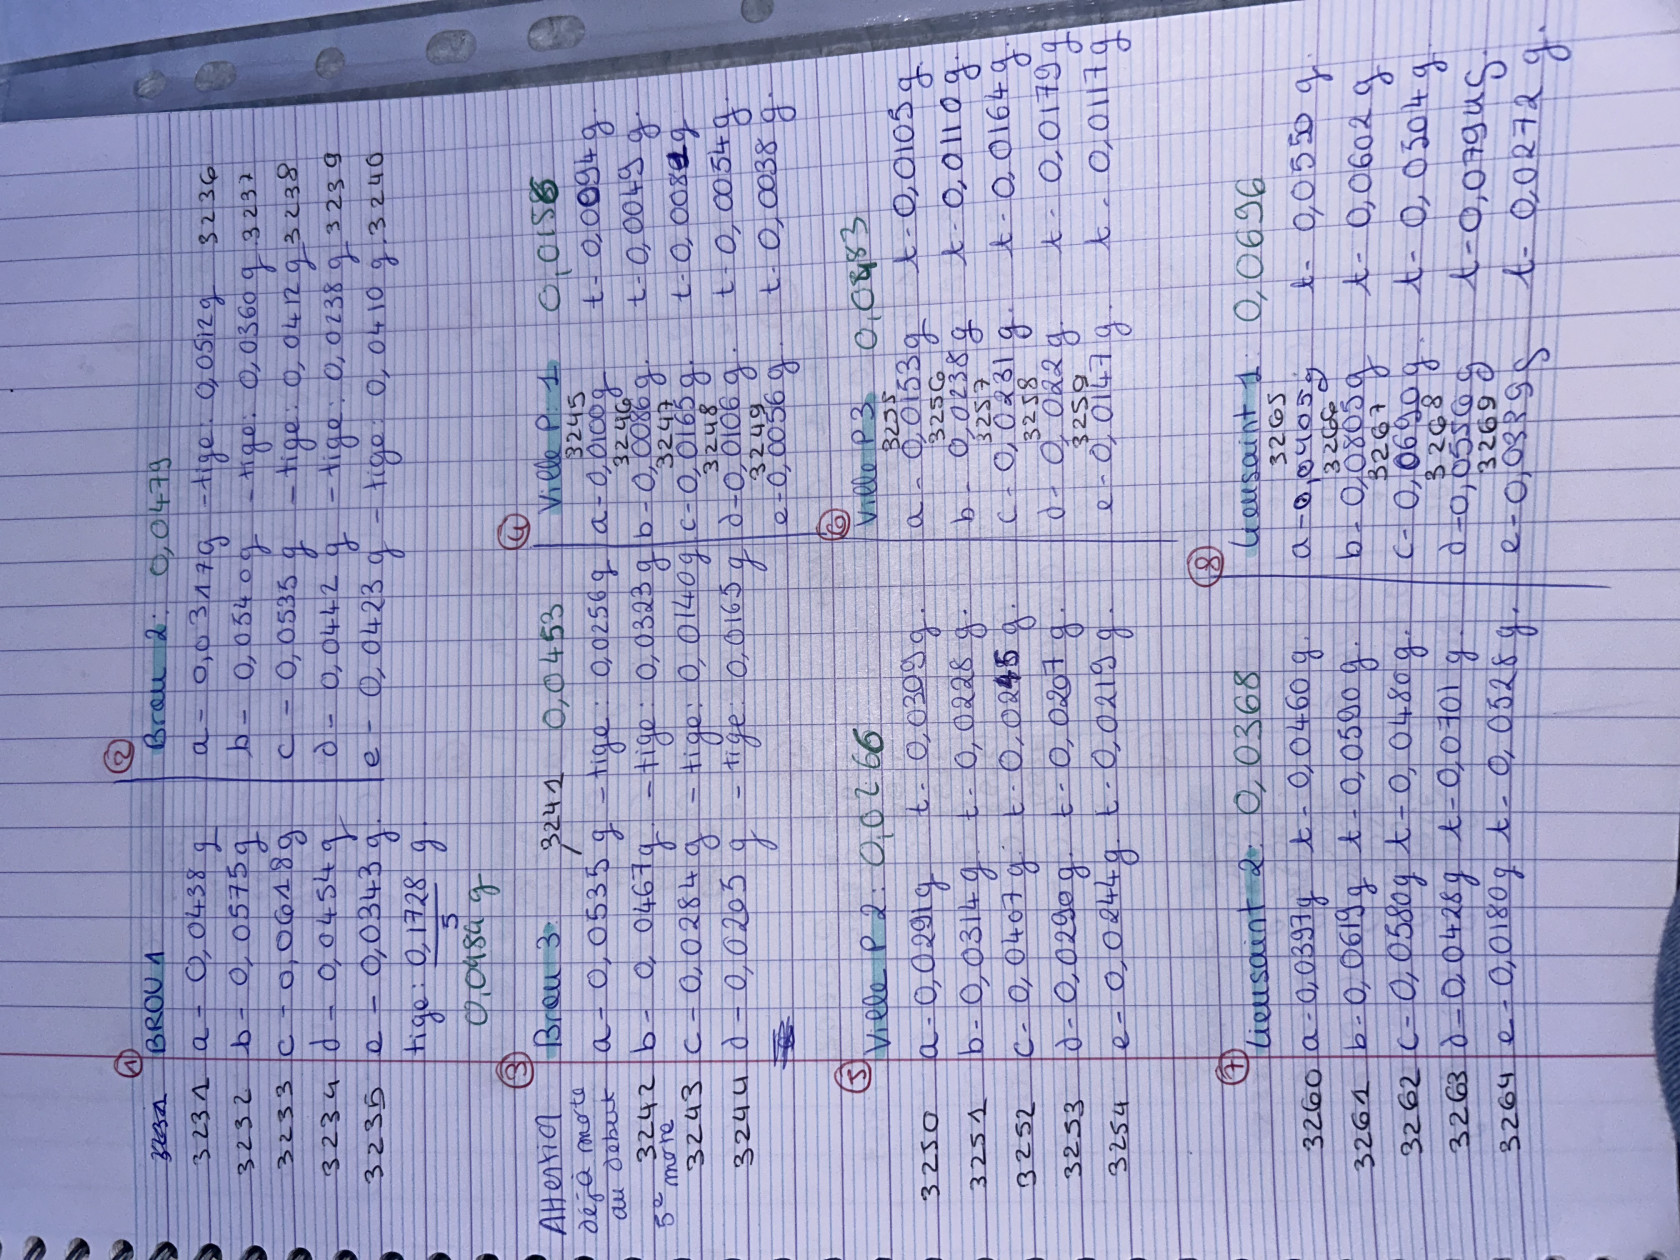 ① BROU 1
3231 a - 0,0438 g
3232 b - 0,0575 g
3233 c - 0,0618 g
3234 d - 0,0454 g
3235 e - 0,0343 g.
tige : 0,1728 g.
5
0,0484 g
② Brou 2 : 0,0479
a - 0,0317 g - tige : 0,0512 g 3236
b - 0,0540 g - tige : 0,0360 g 3237
c - 0,0535 g - tige : 0,0412 g 3238
d - 0,0442 g - tige : 0,0238 g 3239
e - 0,0423 g - tige : 0,0410 g 3240
③ Brou 3 : 3241 0,0453
Attention
déjà morte
au début
5e morte
a - 0,0535 g - tige : 0,0256 g
3242 b - 0,0467 g. - tige : 0,0323 g
3243 c - 0,0284 g - tige : 0,0140 g
3244 d - 0,0205 g - tige : 0,0165 g
④ Ville P. 1 0,0156
3245
a - 0,0100 g t - 0,0094 g.
3246
b - 0,0086 g. t - 0,0049 g.
3247
c - 0,0165 g. t - 0,0081 g
3248
d - 0,0106 g. t - 0,0054 g.
3249
e - 0,0056 g. t - 0,0038 g.
⑤ Ville P 2 : 0,0266
3250 a - 0,0291 g t - 0,0309 g.
3251 b - 0,0314 g. t - 0,0228 g.
3252 c - 0,0407 g. t - 0,0245 g.
3253 d - 0,0290 g. t - 0,0207 g.
3254 e - 0,0244 g. t - 0,0219 g.
⑥ Ville P 3
3255
a - 0,0153 g t - 0,0105 g.
3256
b - 0,0238 g t - 0,0110 g.
3257
c - 0,0231 g. t - 0,0164 g.
3258
d - 0,022 g. t - 0,0179 g
3259
e - 0,0147 g. t - 0,0117 g
⑦ Lieusaint 2 : 0,0368
3260 a - 0,0397 g t - 0,0460 g.
3261 b - 0,0619 g t - 0,0590 g.
3262 c - 0,0580 g t - 0,0480 g.
3263 d - 0,0428 g t - 0,0701 g.
3264 e - 0,0180 g t - 0,0528 g.
⑧ Lieusaint 1 : 0,0696
3265
a - 0,0405 g t - 0,0550 g.
3266
b - 0,0805 g t - 0,0602 g
3267
c - 0,0690 g. t - 0,0504 g.
3268
d - 0,0556 g t - 0,0794 g.
3269
e - 0,0339 g t - 0,0272 g.